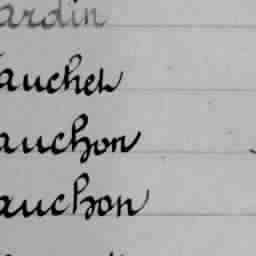 ardin
aucher
auchon
auchon